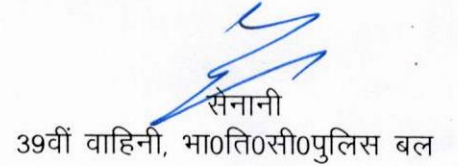 सेनानी
39वीं वाहिनी, भा0ति0सी0पुलिस बल